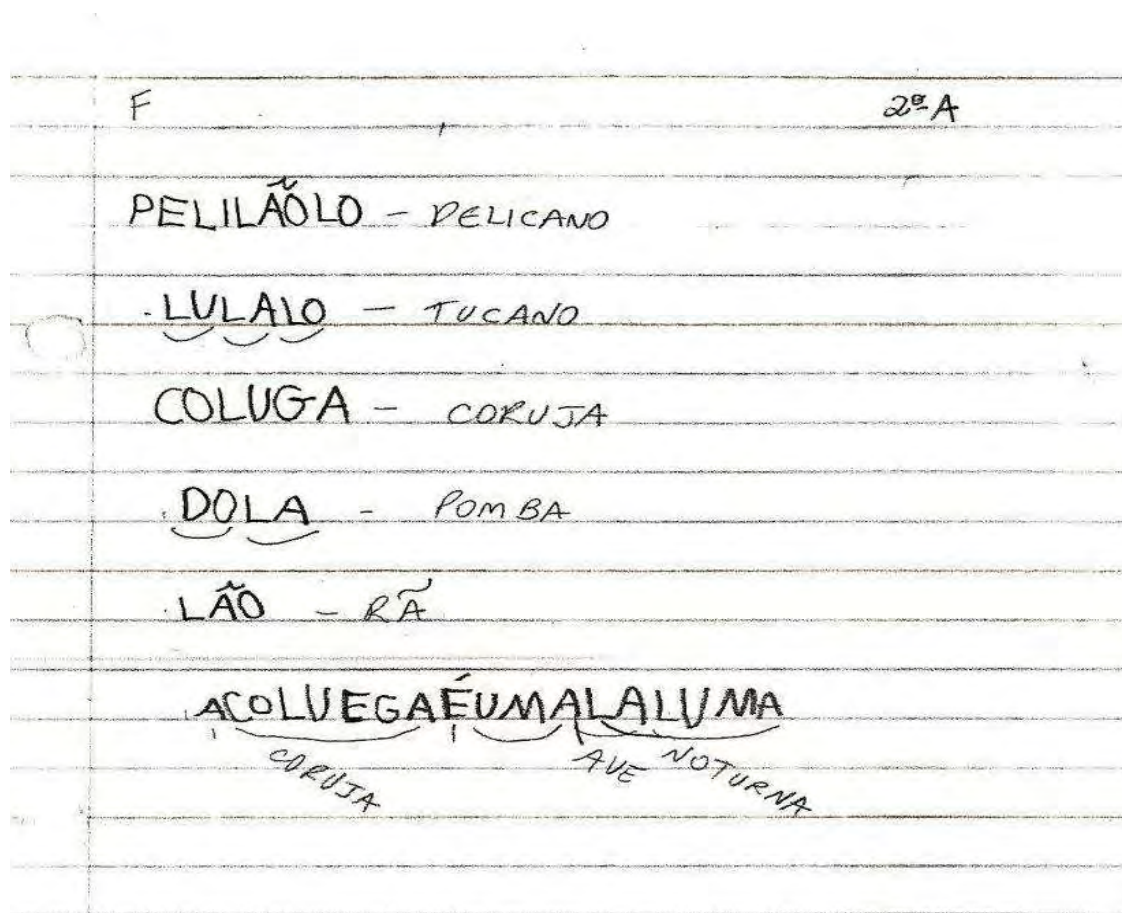 F 2ª A
PELILÃOLO - PELICANO
LULALO - TUCANO
COLUGA - CORUJA
DOLA - POMBA
LÃO - RÃ
ACOLUEGAÉUMALALUMA
CORUJA AVE NOTURNA